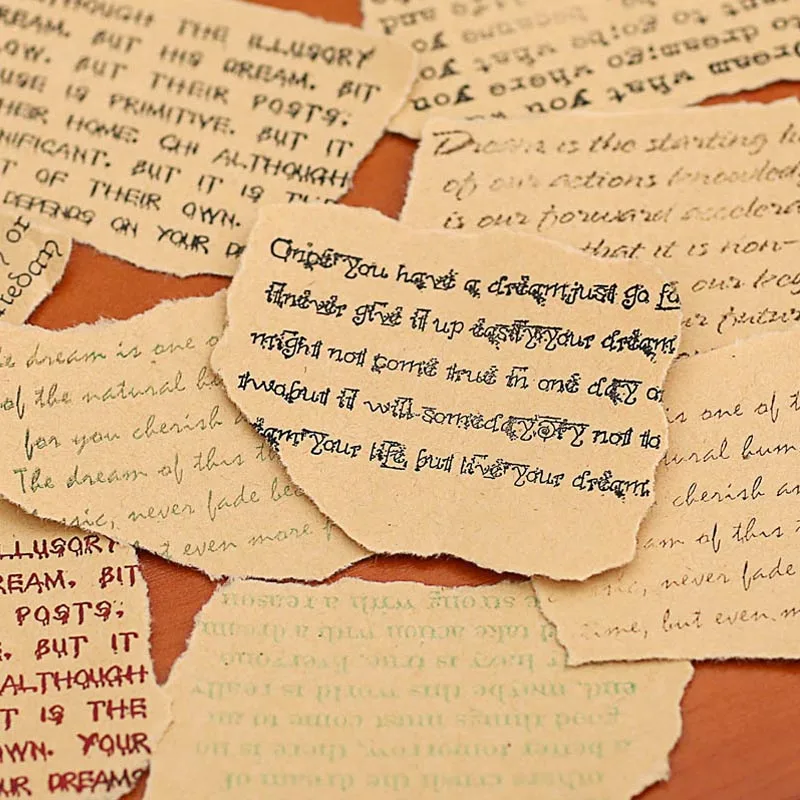 ALTHOUGH THE ILLUSORY
DREAM. BUT HIS DREAM. BIT
BUT THEIR POSTS;
USE IS PRIMITIVE. BUT IT
THEIR HOME. CHI ALTHOUGH
NIFICANT. BUT IT IS THE
T OF THEIR OWN.
DEPENDS ON YOUR
you because
to go;be
to dream;go where you
Dream what you
Dream is the starting
of our actions knowledg
is our forward accelera
that it is non-
our
futur
or
Once you have a dream,just go fo
it.never give it up easily,your dream
might not come true in one day or
two,but it will someday,try not to
your life but live your dream
e dream is one o
of the natural hu
for you cherish a
The dream of this t
music, never fade bec
t even more
is one of t
ural hum
cherish an
am of this t
, never fade
time, but even m
LLUSORY
REAM. BIT
POSTS;
. BUT IT
ALTHOUGH
T IS THE
OWN. YOUR
UR DREAMS
others crush the dream of
a better tomorrow, there is no
good things must come to an
end, maybe this world is really
or hazy is true. Everyone
d take action with a dream
e strong with a reason